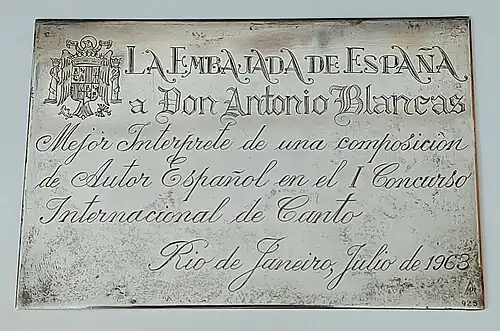 LA EMBAJADA DE ESPAÑA
a Don Antonio Blancas
Mejor Interprete de una composición
de Autor Español en el I Concurso
Internacional de Canto
Rio de Janeiro, Julio de 1963
925